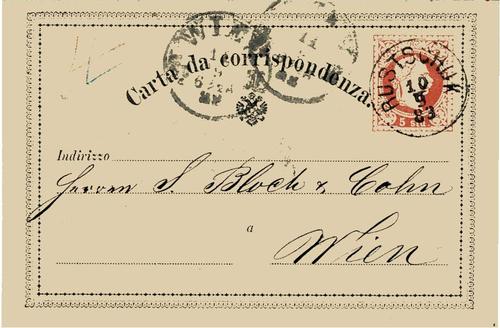 WIEN
Carta da corrispondenza.
RUSTSCHUK
10
9
83
5 sld
Indirizzo
Herren S. Bloch & Cohn
a
Wien